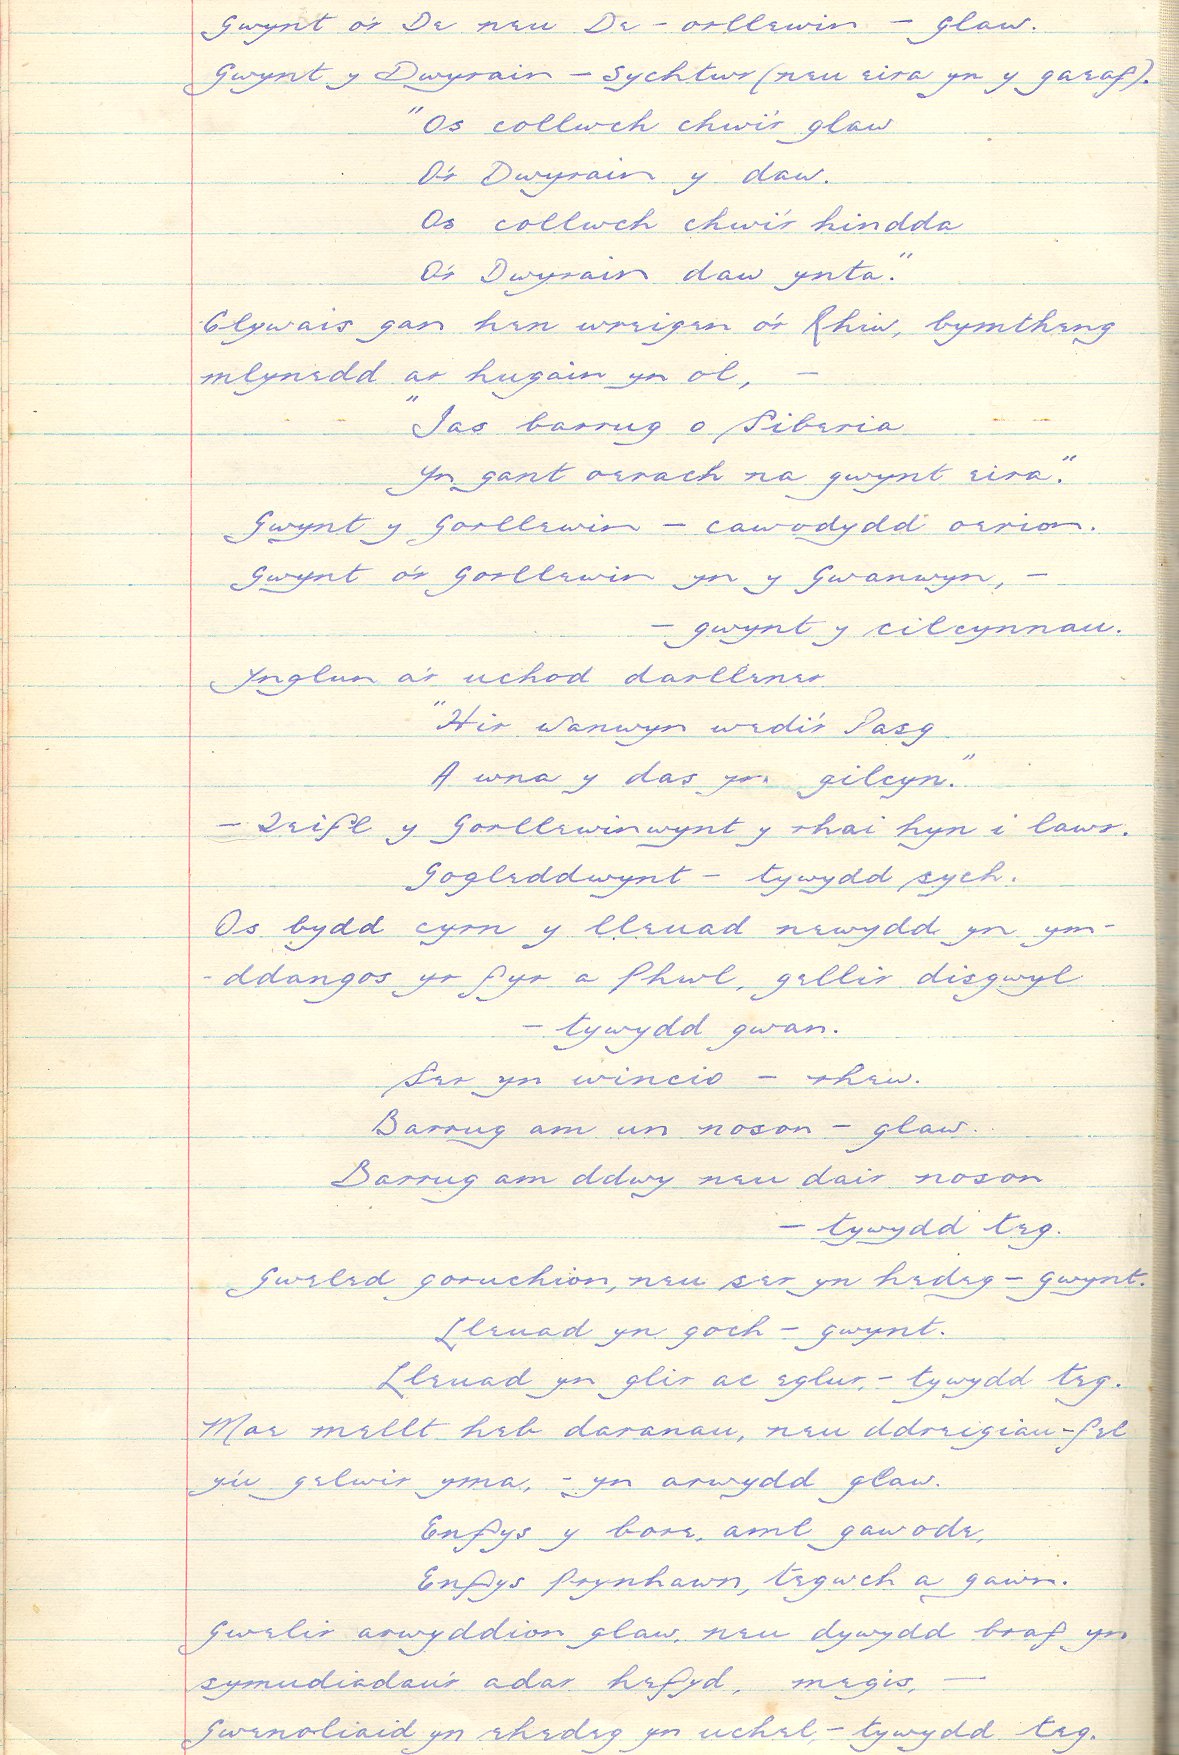 Gwynt o'r De neu De-orllewin – glaw.
Gwynt y Dwyrain – Sychtwr (neu eira yn y gaeaf).
"Os collwch chwi'r glaw
O'r Dwyrain y daw.
Os collwch chwi'r hindda
O'r Dwyrain daw ynta."
Clywais gan hen wreigan o'r Rhiw, bymtheng
mlynedd ar hugain yn ol, –
"Ias barrug o Siberia
Yn gant oerach na gwynt eira."
Gwynt y Gorllewin – cawodydd oerion.
Gwynt o'r Gorllewin yn y Gwanwyn, –
– gwynt y cilcynnau.
Ynglun a'r uchod darllener
"Hir Wanwyn wedi'r Pasg
A wna y das yn gilcyn."
– Teifl y Gorllewinwynt y rhai hyn i lawr.
Gogleddwynt – tywydd sych.
Os bydd cyrn y lleuad newydd yn ym-
-ddangos yr fyr a phwl, gellir disgwyl
– tywydd gwan.
Ser yn wincio – rhew.
Barrug am un noson – glaw.
Barrug am ddwy neu dair noson
– tywydd teg.
Gweled goruchion, neu ser yn hedeg – gwynt.
Lleuad yn goch – gwynt.
Lleuad yn glir ac eglur, – tywydd teg.
Mae mellt heb daranau, neu ddreigiau – fel
y'u gelwir yma, – yn arwydd glaw.
Enfys y bore, aml gawode,
Enfys prynhawn, tegwch a gawn.
Gwelir arwyddion glaw, neu dywydd braf yn
symudiadau'r adar hefyd, megis, –
Gwenoliaid yn ehedeg yn uchel, – tywydd teg.